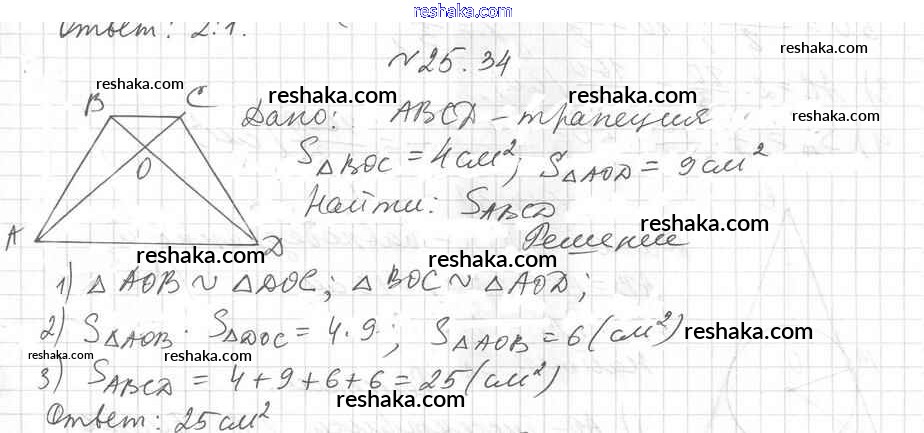 reshaka.com
Ответ: 2:1.
reshaka.com
№25.34
reshaka.com
B C
reshaka.com reshaka.com
Дано: ABCD – трапеция
reshaka.com
O
S△BOC = 4 см²; S△AOD = 9 см²
Найти: SABCD
reshaka.com
A D
Решение
reshaka.com reshaka.com
1) △AOB ~ △DOC; △BOC ~ △AOD;
2) S△AOB · S△DOC = 4 · 9; S△AOB = 6 (см²)
reshaka.com
reshaka.com reshaka.com
3) SABCD = 4 + 9 + 6 + 6 = 25 (см²)
reshaka.com
Ответ: 25 см²